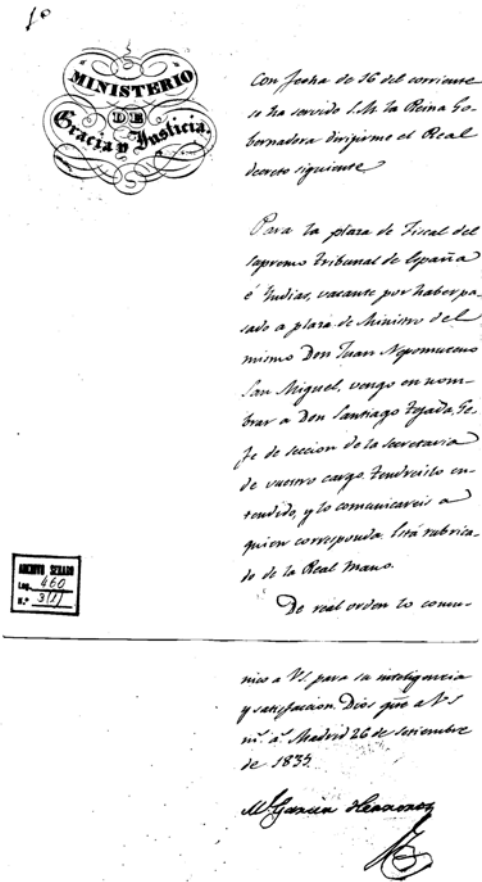 1º
MINISTERIO
DE
Gracia y Justicia.
Con fecha de 16 del corriente
se ha servido S.M. la Reina Go-
bernadora dirigirme el Real
decreto siguiente
Para la plaza de Fiscal del
supremo tribunal de España
é Indias, vacante por haber pa-
sado a plaza de Ministro del
mismo Don Juan Nepomuceno
San Miguel, vengo en nom-
brar a Don Santiago Tejada, Ge-
fe de seccion de la secretaria
de vuestro cargo. Tendreislo en-
tendido, y lo comunicareis a
quien corresponda. Está rubrica-
do de la Real mano.
De real orden lo comu-
ARCHIVO SENADO
Leg. 460
N.º 3(1)
nico a VS. para su inteligencia
y satisfaccion. Dios gue a VS
m.s a.s Madrid 26 de setiembre
de 1835.
M.l Garcia Herreros